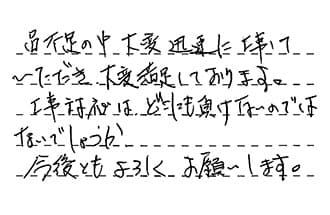 品不足の中大変迅速に工事して
いただき大変満足しております。
工事対応は、どこにも負けないのでは
ないでしょうか
今後ともよろしくお願いします。